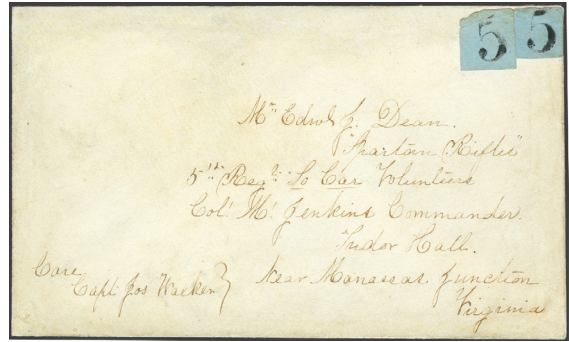 5 5
Mr. Edwd J. Dean.
"Spartan Rifles"
5th Regt. So Car Volunteers
Col. M. Jenkins Commander.
Tudor Hall.
Near Manassas Junction
Virginia
Care
Capt Jos Walker}